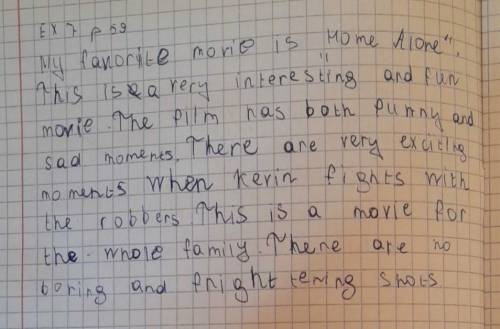 Ex 7 p 59
My favorite movie is "Home Alone".
This is a very interesting and fun
movie. The film has both funny and
sad moments. There are very exciting
moments when Kevin fights with
the robbers. This is a movie for
the whole family. There are no
boring and frighttening shots